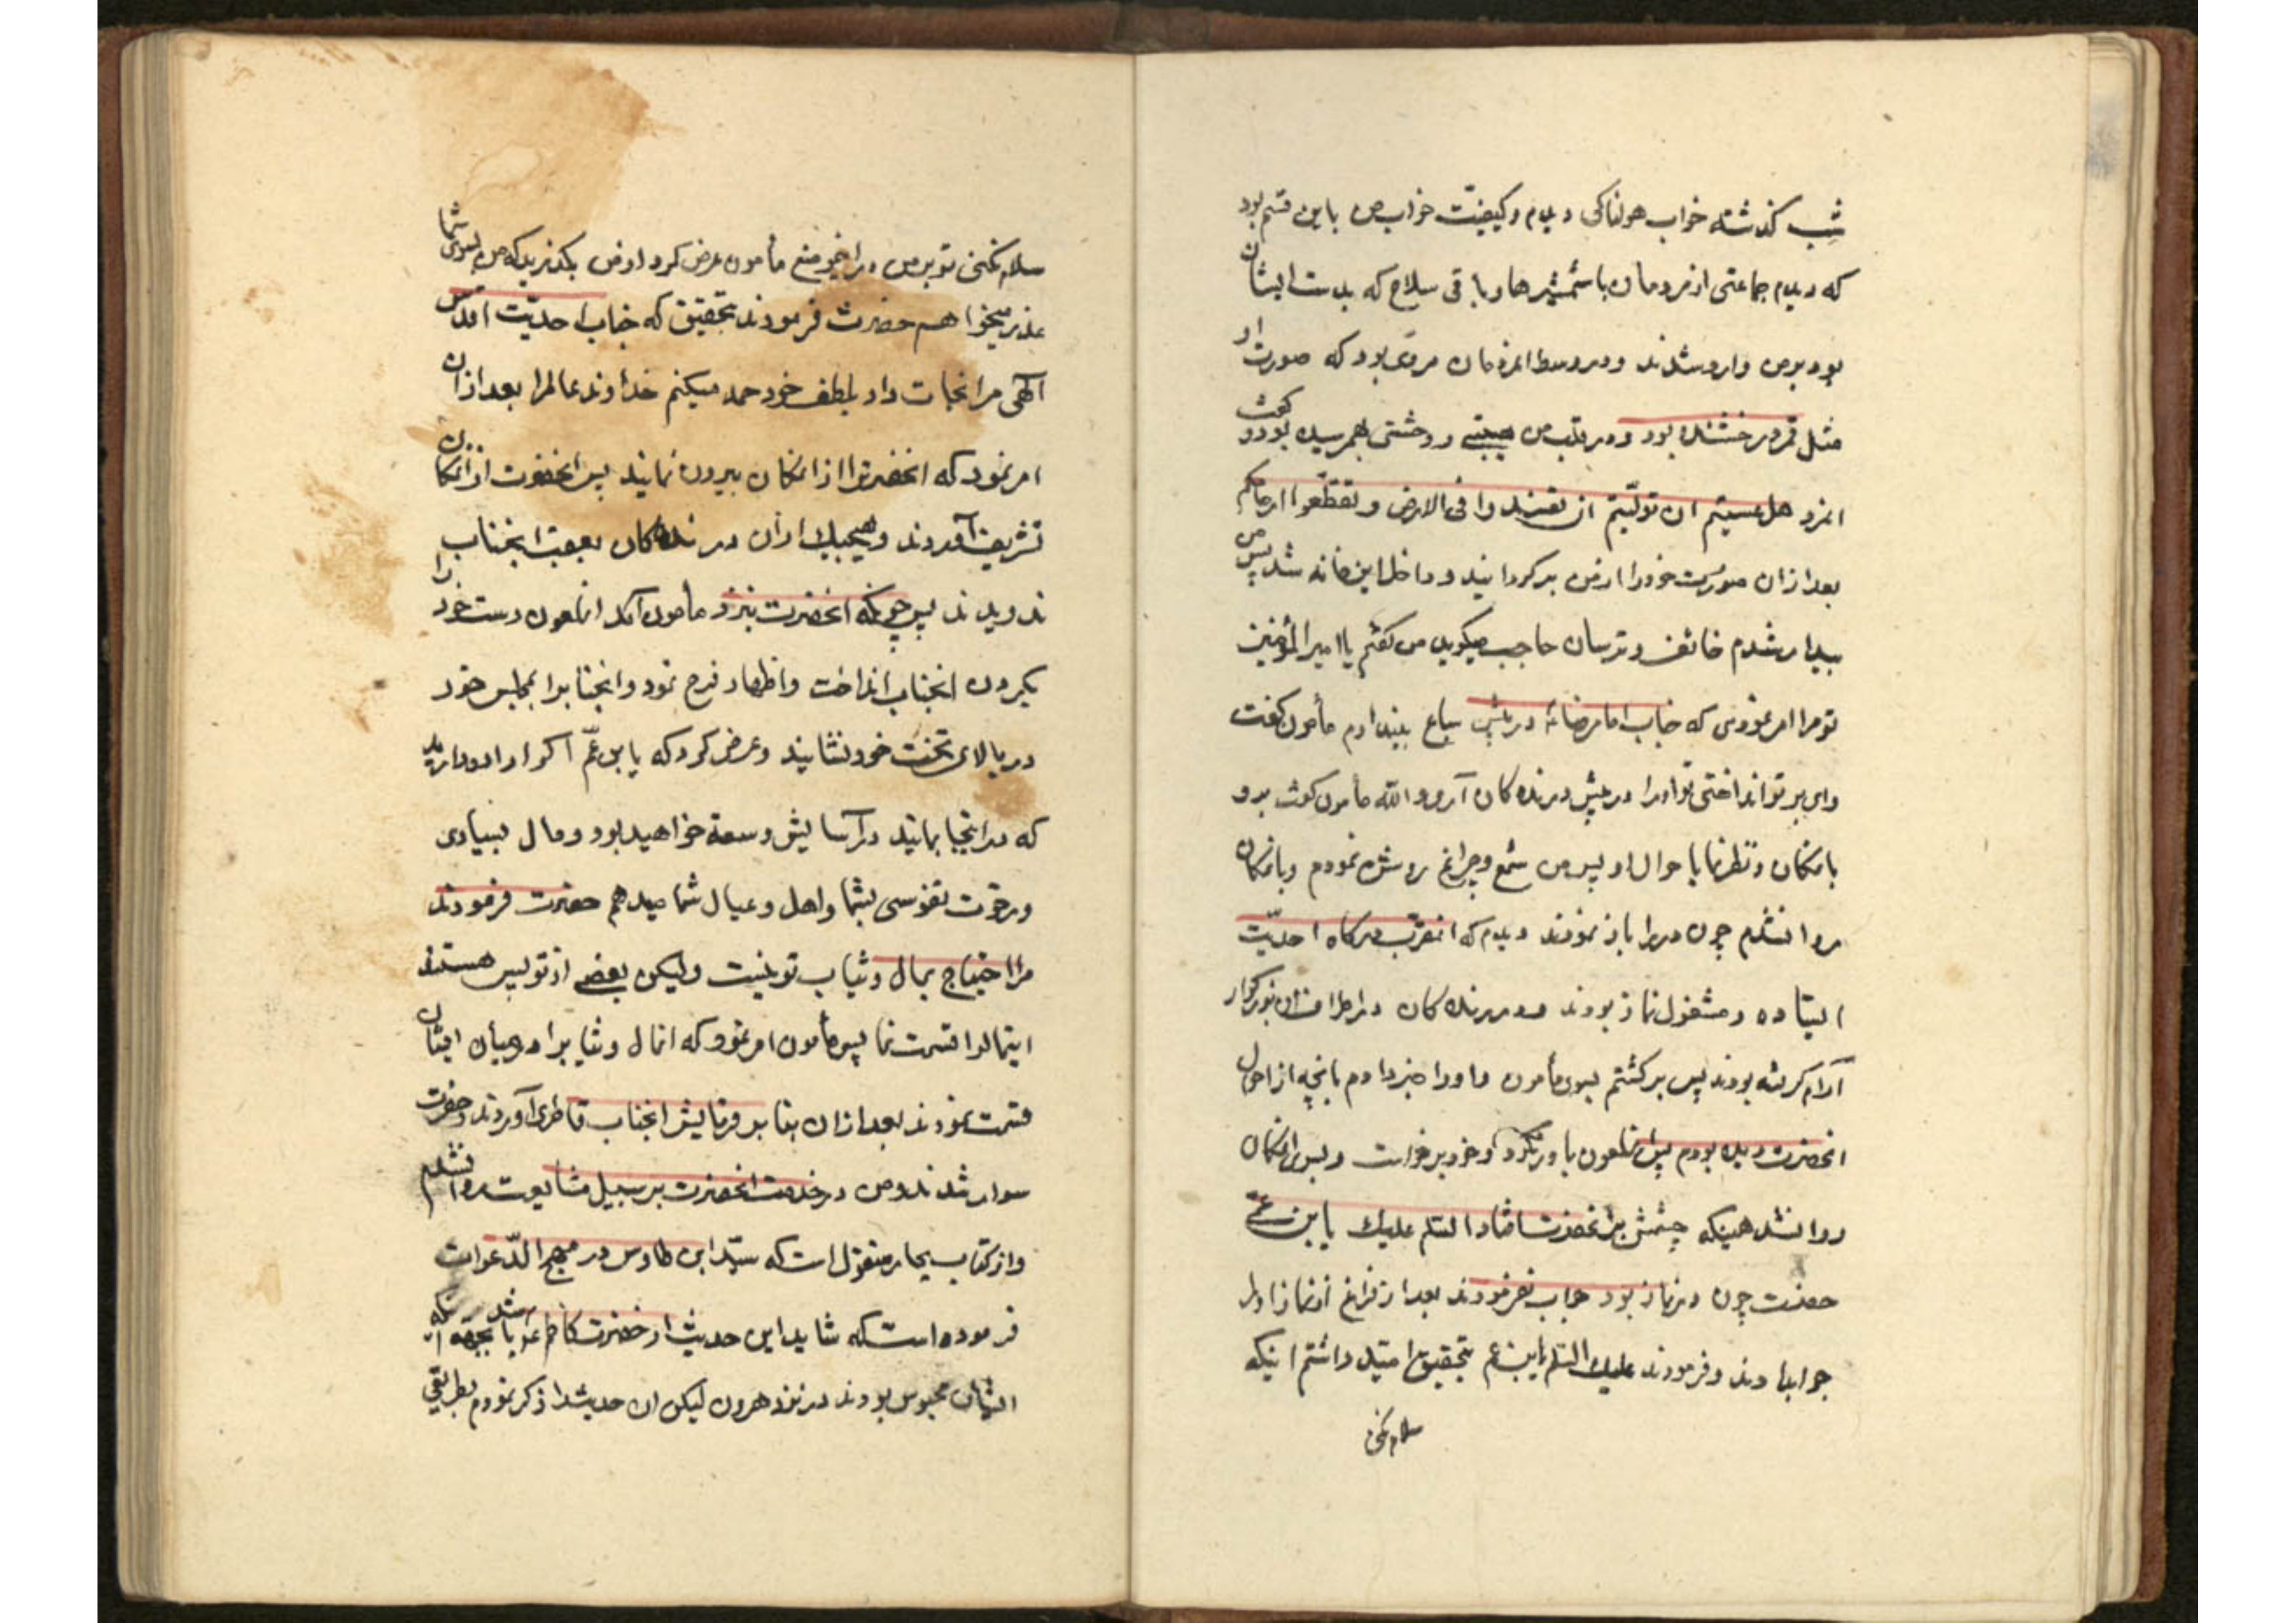 شب گذشته خواب هولناکی دیدم و کیفیّت خواب من باین قسم بود
که دیدم جماعتی از مردمان با شمشیرها و باقی سلاح که بدست ایشان
بود بر من وارد شدند و در وسط انمردمان مردی بود که صورت او
مثل قمر درخشنده بود و در قلب من هیبتی و وحشتی بهمرسیده بود و گفت
انمرد هل عسیتم ان تولّیتم ان تفسدوا فی الارض و تقطّعوا ارحامکم
بعد از ان صورت خود را از من برگردانید و داخل این خانه شد پس من
بیدار شدم خائف و ترسان حاجب میگوید من گفتم یا امیر المؤمنین
تو مرا امر نمودی که جناب امام رضا را در پیش سباع بیندازم مأمون گفت
وای بر تو انداختی تو او را در پیش درنده کان آری والله مأمون گفت برو
بامکان و نظر نما باحوال او پس من شمع و چراغ روشن نمودم و بامکان
روانشدم چون در را باز نمودند دیدم که انمقرّب درگاه احدیّت
ایستاده و مشغول نماز بودند و درنده کان در اطراف ان بزرگوار
آرام گرفته بودند پس برگشتم بسوی مأمون و او را خبر دادم بانچه از احوال
انحضرت دیده بودم پس انملعون باور نکرد و خود برخواست و بسوی انمکان
روانشد همینکه چشمش بر انحضرت افتاد السلم علیک یابن عم
حضرت چون در نماز بود جواب نفرمودند بعد از فراغ از نماز او را
جواب دادند و فرمودند علیک السلم یابن عم بتحقیق امید داشتم اینکه
سلام نکنی
سلام نکنی تو بر من در این موضع مأمون عرض کرد از من بگذرید که من بسوی شما
عذر میخواهم حضرت فرمودند بتحقیق که جناب احدیّت اقدس
آلهی مرا نجات داد بلطف خود حمد میکنم خداوند عالمرا بعد از ان
امر نمود که انحضرترا از انمکان بیرون نمایند پس انحضرت از انمکان
تشریف آوردند و هیچیک از ان درنده کان بعقب انجناب
ندویدند پس چونکه انحضرت بنزد مأمون آمد انملعون دست خود را
بگردن انجناب انداخت و اظهار فرح نمود و انجنابرا بمجلس خود
در بالای تخت خود نشانید و عرض کرد که یابن عمّ اکر اراده دارید
که در اینجا بمانید در آسایش و سعة خواهید بود و مال بسیاری
و رخوت نفوسی بشما و اهل و عیال شما میدهم حضرت فرمودند
مرا احتیاج بمال و ثیاب تو نیست ولیکن بعضی از تو پس هستند
اینمالرا قسمت نما پس مأمون امر نمود که انمال و ثیابرا در میان ایشان
قسمت نمودند بعد از ان بنا بر فرمایش انجناب قاطری آوردند و حضرت
سوار شدند و من در خدمت انحضرت بر سبیل مشایعت روانشدم
و از کتاب بحار منقول است که سیّد ابن طاوس در مهج الدّعوات
فرموده است که شاید این حدیث از حضرت کاظم ع باشد بجهة آنکه
ایشان محبوس بودند در نزد هرون لیکن ان حدیث را ذکر نمودم بطریقی